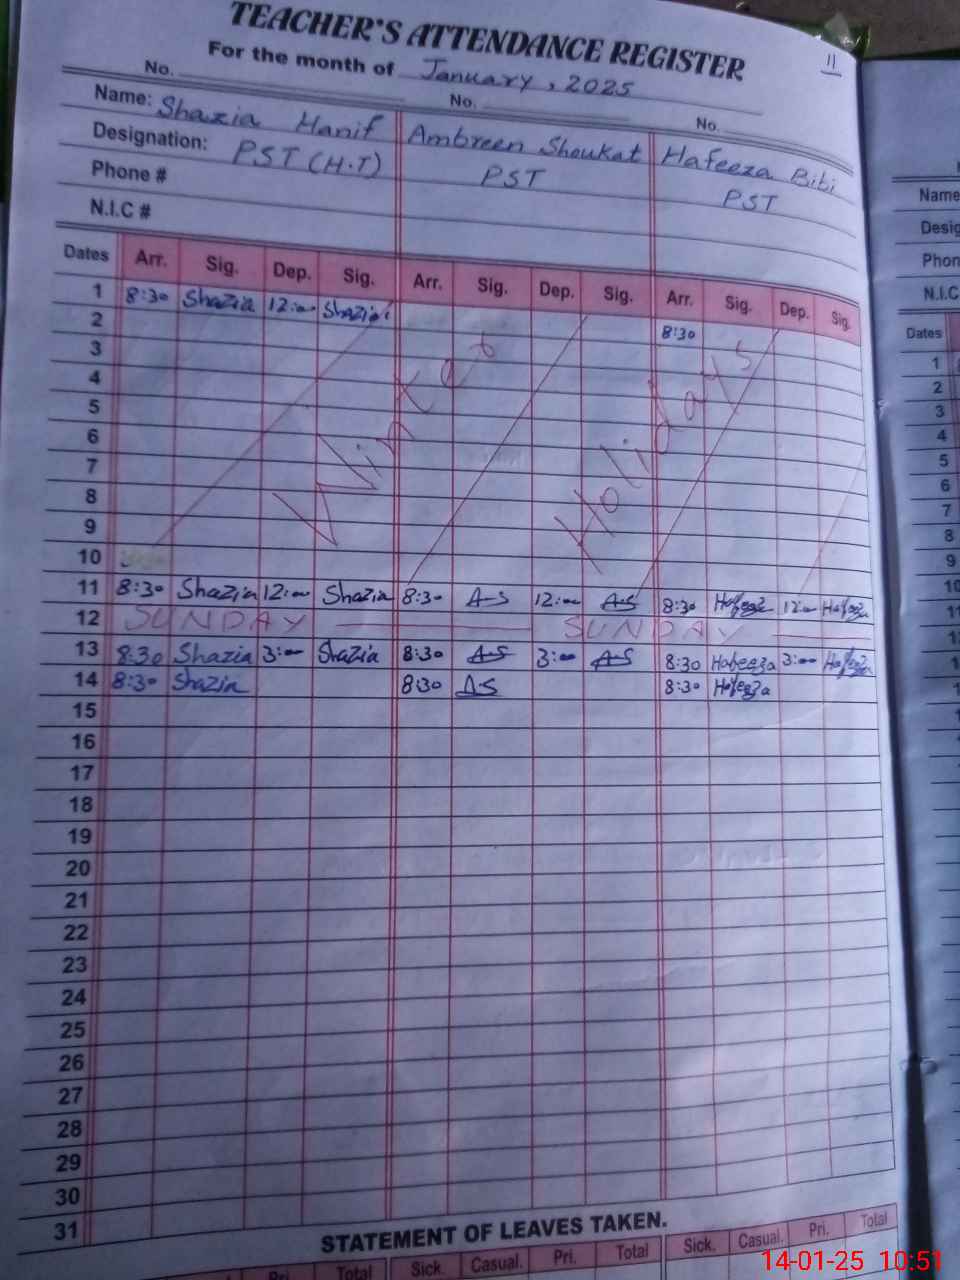 TEACHER'S ATTENDANCE REGISTER
11
For the month of January, 2025
No. No. No.
Name: Shazia Hanif Ambreen Shoukat Hafeeza Bibi
Designation: PST (H.T) PST PST
Phone #
N.I.C #
Dates Arr. Sig. Dep. Sig. Arr. Sig. Dep. Sig. Arr. Sig. Dep. Sig.
1 8:30 Shazia 12:00 Shazia
2 8:30
3
4
5
6
7
8
9
10
Winter Holidays
11 8:30 Shazia 12:00 Shazia 8:30 A-S 12:00 A-S 8:30 Hafeeza 12:00 Hafeeza
12 SUNDAY SUNDAY
13 8:30 Shazia 3:00 Shazia 8:30 A-S 3:00 A-S 8:30 Hafeeza 3:00 Hafeeza
14 8:30 Shazia 8:30 A-S 8:30 Hafeeza
15
16
17
18
19
20
21
22
23
24
25
26
27
28
29
30
31
STATEMENT OF LEAVES TAKEN.
Pri. Total Sick. Casual. Pri. Total Sick. Casual. Pri. Total
Name
Desig
Phon
N.I.C
Dates
1
2
3
4
5
6
7
8
9
10
11
14-01-25 10:51